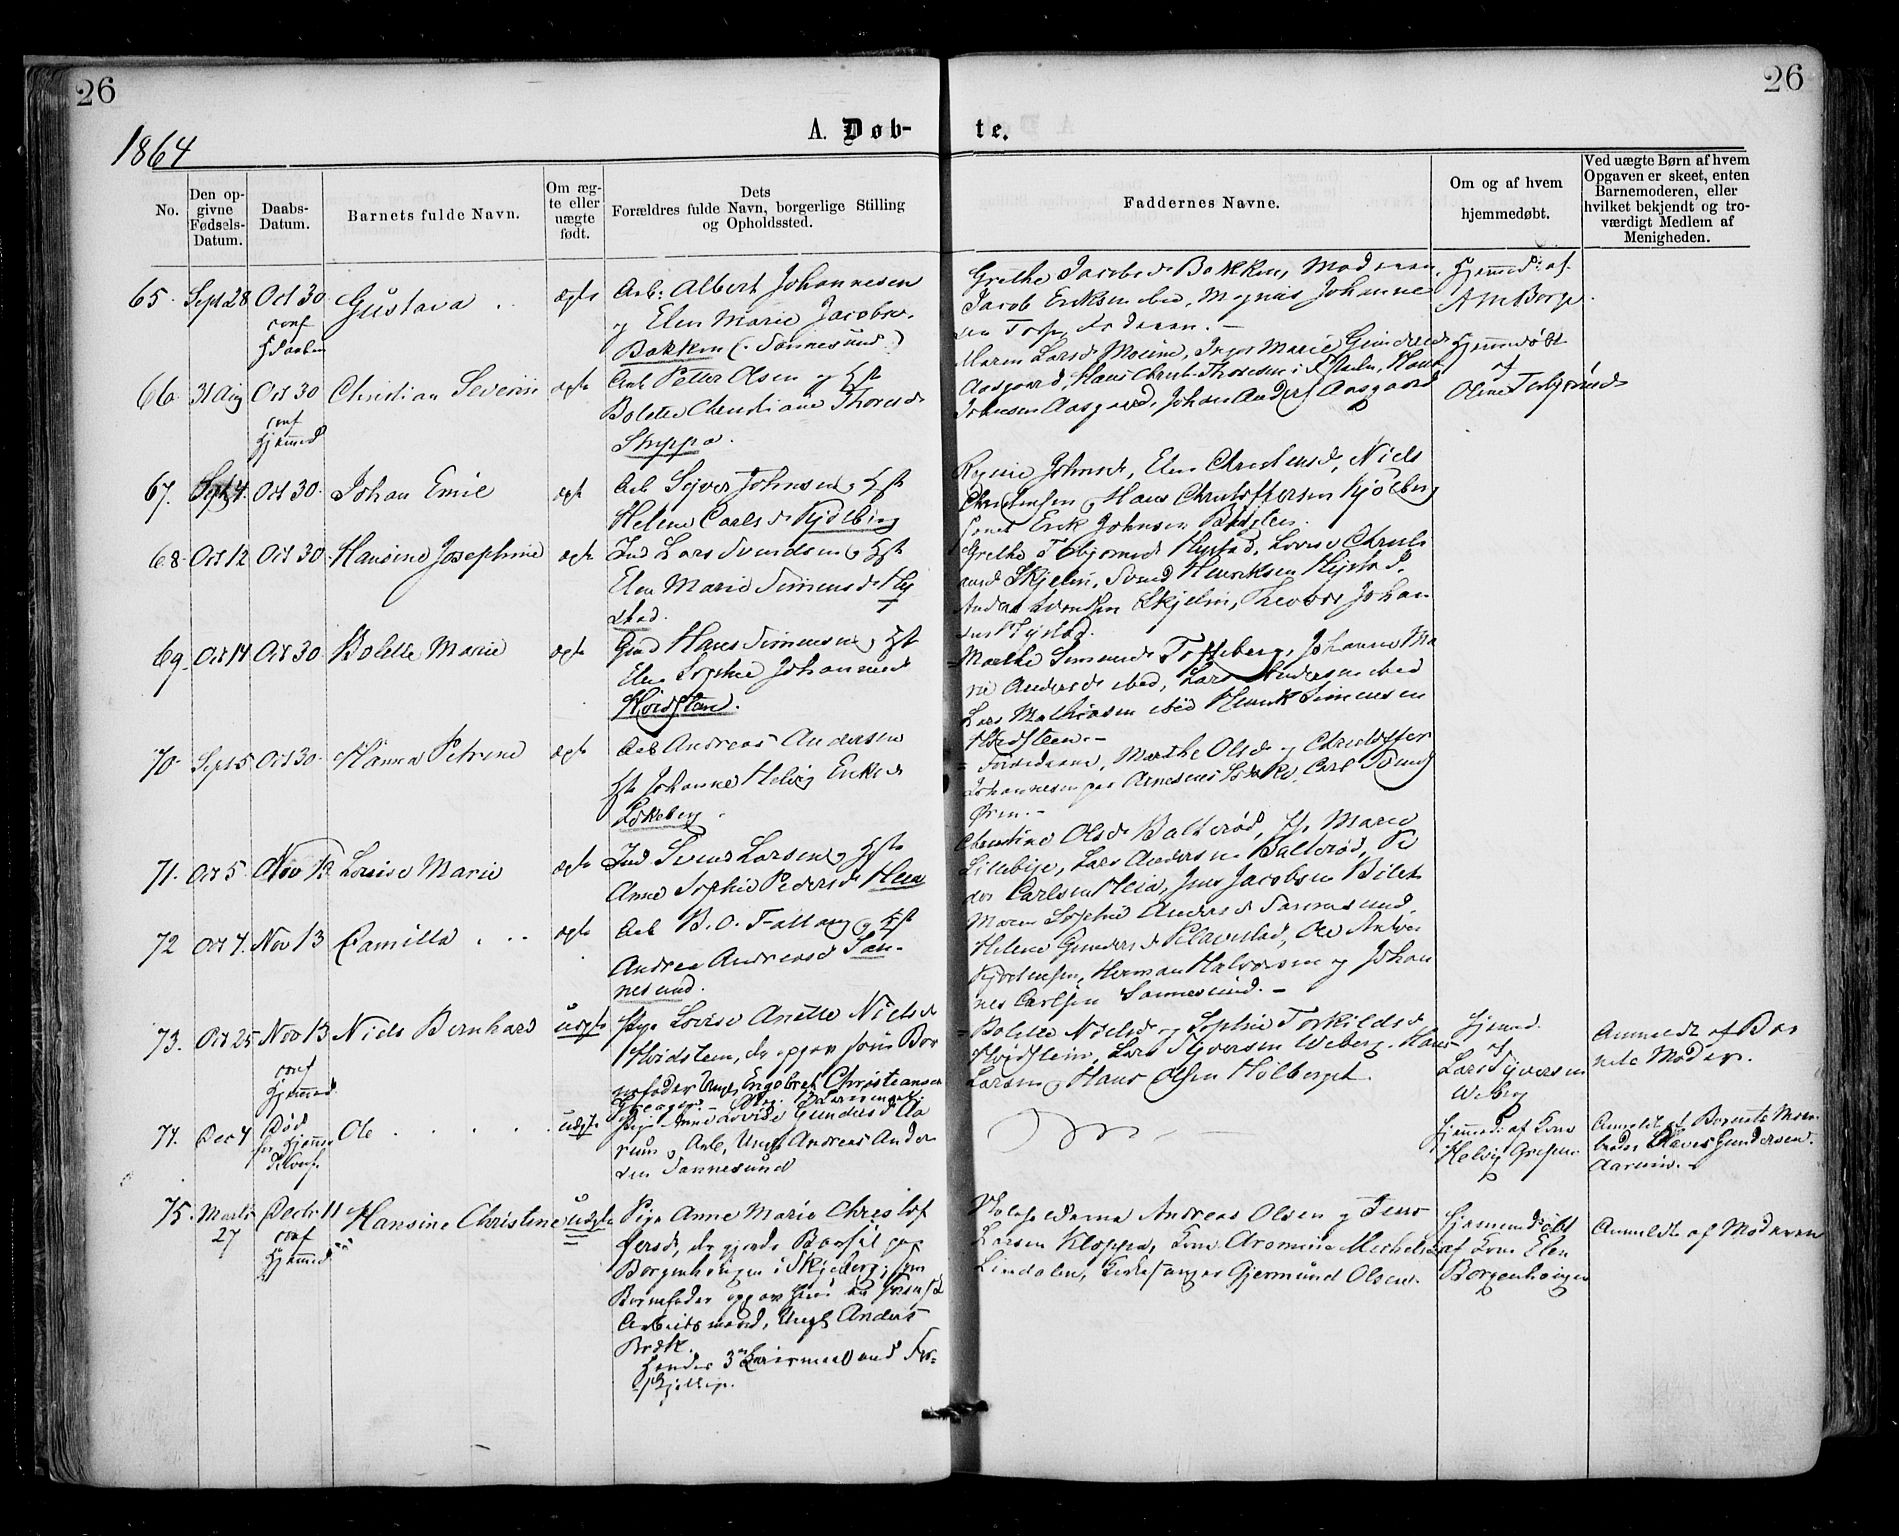 26
26
1864
A. Døb-
te.
No.
Den op-
givne
Fødsels-
Datum.
Daabs-
Datum.
Barnets fulde Navn.
Om æg-
te eller
uægte
født.
Dets
Forældres fulde Navn, borgerlige Stilling
og Opholdssted.
Faddernes Navne.
Om og af hvem
hjemmedøbt.
Ved uægte Børn af hvem
Opgaven er skeet, enten
Barnemoderen, eller
hvilket bekjendt og tro-
værdigt Medlem af
Menigheden.
65. Sept 28 Oct 30 Gustava ægte
conf
Hj daaben
Arb: Albert Johannesen
og Elen Marie Jacobsen
Bakken (Sannesund)
Grethe Jacobsd Bakken, Moderen,
Jacob Eriksen ibid, Magnus Johanne
sen Torp, Faderen.
Hjemmed: af
A M Borge.
66. 31 Aug Oct 30 Christian Severin ægte
conf
Hjemmed
Arb Petter Olsen og Hst
Bolette Christiane Thoresd
Skyppa.
Maren Larsd Moum, Inger Marie Gundersd
Aasgaard, Hans Christi Thoresen, Hans
Johansen Aasgaard, Johan Anders Aasgaard
Hjemmedøbt
af
Oline Torbjørnsd
67. Sept 4. Oct 30. Johan Emil ægte
Arb Sejver Johnsen og Hst
Helene Carlsd Kjølberg
Johnsd, Elen Christensd, Niels
Christensen, Hans Christoffersen Kjølberg
Erik Johnsen
68. Oct 12 Oct 30. Hansine Josephine ægte
Ind Lars Svendsen og Hst
Elen Marie Simensd Hy
stad.
Grethe Torbjørnsd Hystad, Lovise Christi
ansd Skjelin, Svend Henriksen Hystad,
Anders Svendsen Skjelin, Theodor Johan
sen Hystad.
69. Oct 14 Oct 30. Bolette Marie ægte
Gmd Hans Simensen og Hst
Elen Sophie Johannesd
Hvidsten.
Marthe Simensd Tofteberg, Johanne Ma
rie Andersd ibid, Lars Andersen ibid
Lars Mathiasen ibid Henrik Simensen
Hvidsteen.
70. Sept 5 Oct 30. Hanna Petrine ægte
Arb Andreas Andersen
Hst Johanne Helvig Eriksd
Lokeberg.
Forældrene, Marthe Olsd og Christoffer
Johannesen paa, Carl Svends
Ørm.
71. Oct 5. Nov 13. Lovise Marie ægte
Ind Svend Larsen og Hst
Anne Sophie Pedersd Heia
Christine Olsd Balterød, Marie
Lillebye, Lars Andersen Balterød, Pe
der Carlsen Heia, Jens Jacobsen Bilet
72 Oct 7. Nov 13 Camilla ægte
Arb B. O. Fallang og Hst
Andrea Andreasd San-
nesund.
Maren Sophie Andersd Sannesund,
Helene Gundersd Klavestad, Ole Andrè
Kjerstensen, Herman Halvorsen og Johan
nes Carlsen Sannesund.
73. Oct 25 Nov 13 Niels Bernhard uægte
conf
Hjemmed.
Pige Lovise Anette Nielsd
Hvidsteen, der opgav som Bar
nefader Ungk Engebret Christiansen
Bolette Nielsd og Sophie Torkildsd
Hvidsteen, Lars Syversen Weberg, Hans
Larsen og Hans Olsen Holberget.
Hjemmd.
af
Lars Syversen
Weberg
Anmeldt af Bar
nets Moder.
74. Dec 4 Død Ole uægte
før Hjemme
Konf.
Pige Anne Lovise Gundersd Aa
rum og Arb, Ungk Andreas Ander
sen Sannesund
Hjemmed: af Kone
Helvig Grefsen
Anmeldt af Barnets Mor
broder Gundersen.
Aarum.
75. Marts Decbr 11 Hansine Christine uægte
27 conf
Hjemmed
Pige Anne Marie Christof
fersd, der gjorde Barsel paa
Borgenhougen i Skjeberg; som
Barnefader opgav hun en svensk
Arbeidsmand, Ungk Anders
Bræk.
Hendes 3die Leiermaal med For-
skjellige.
Andreas Olsen og Jens
Larsen Kloppa, Kone Michelsd
Lindalen, Kirkesanger Gjermund Olsen.
Hjemmedøbt
af Kone Elen
Borgenhougen
Anmeldt af Moderen